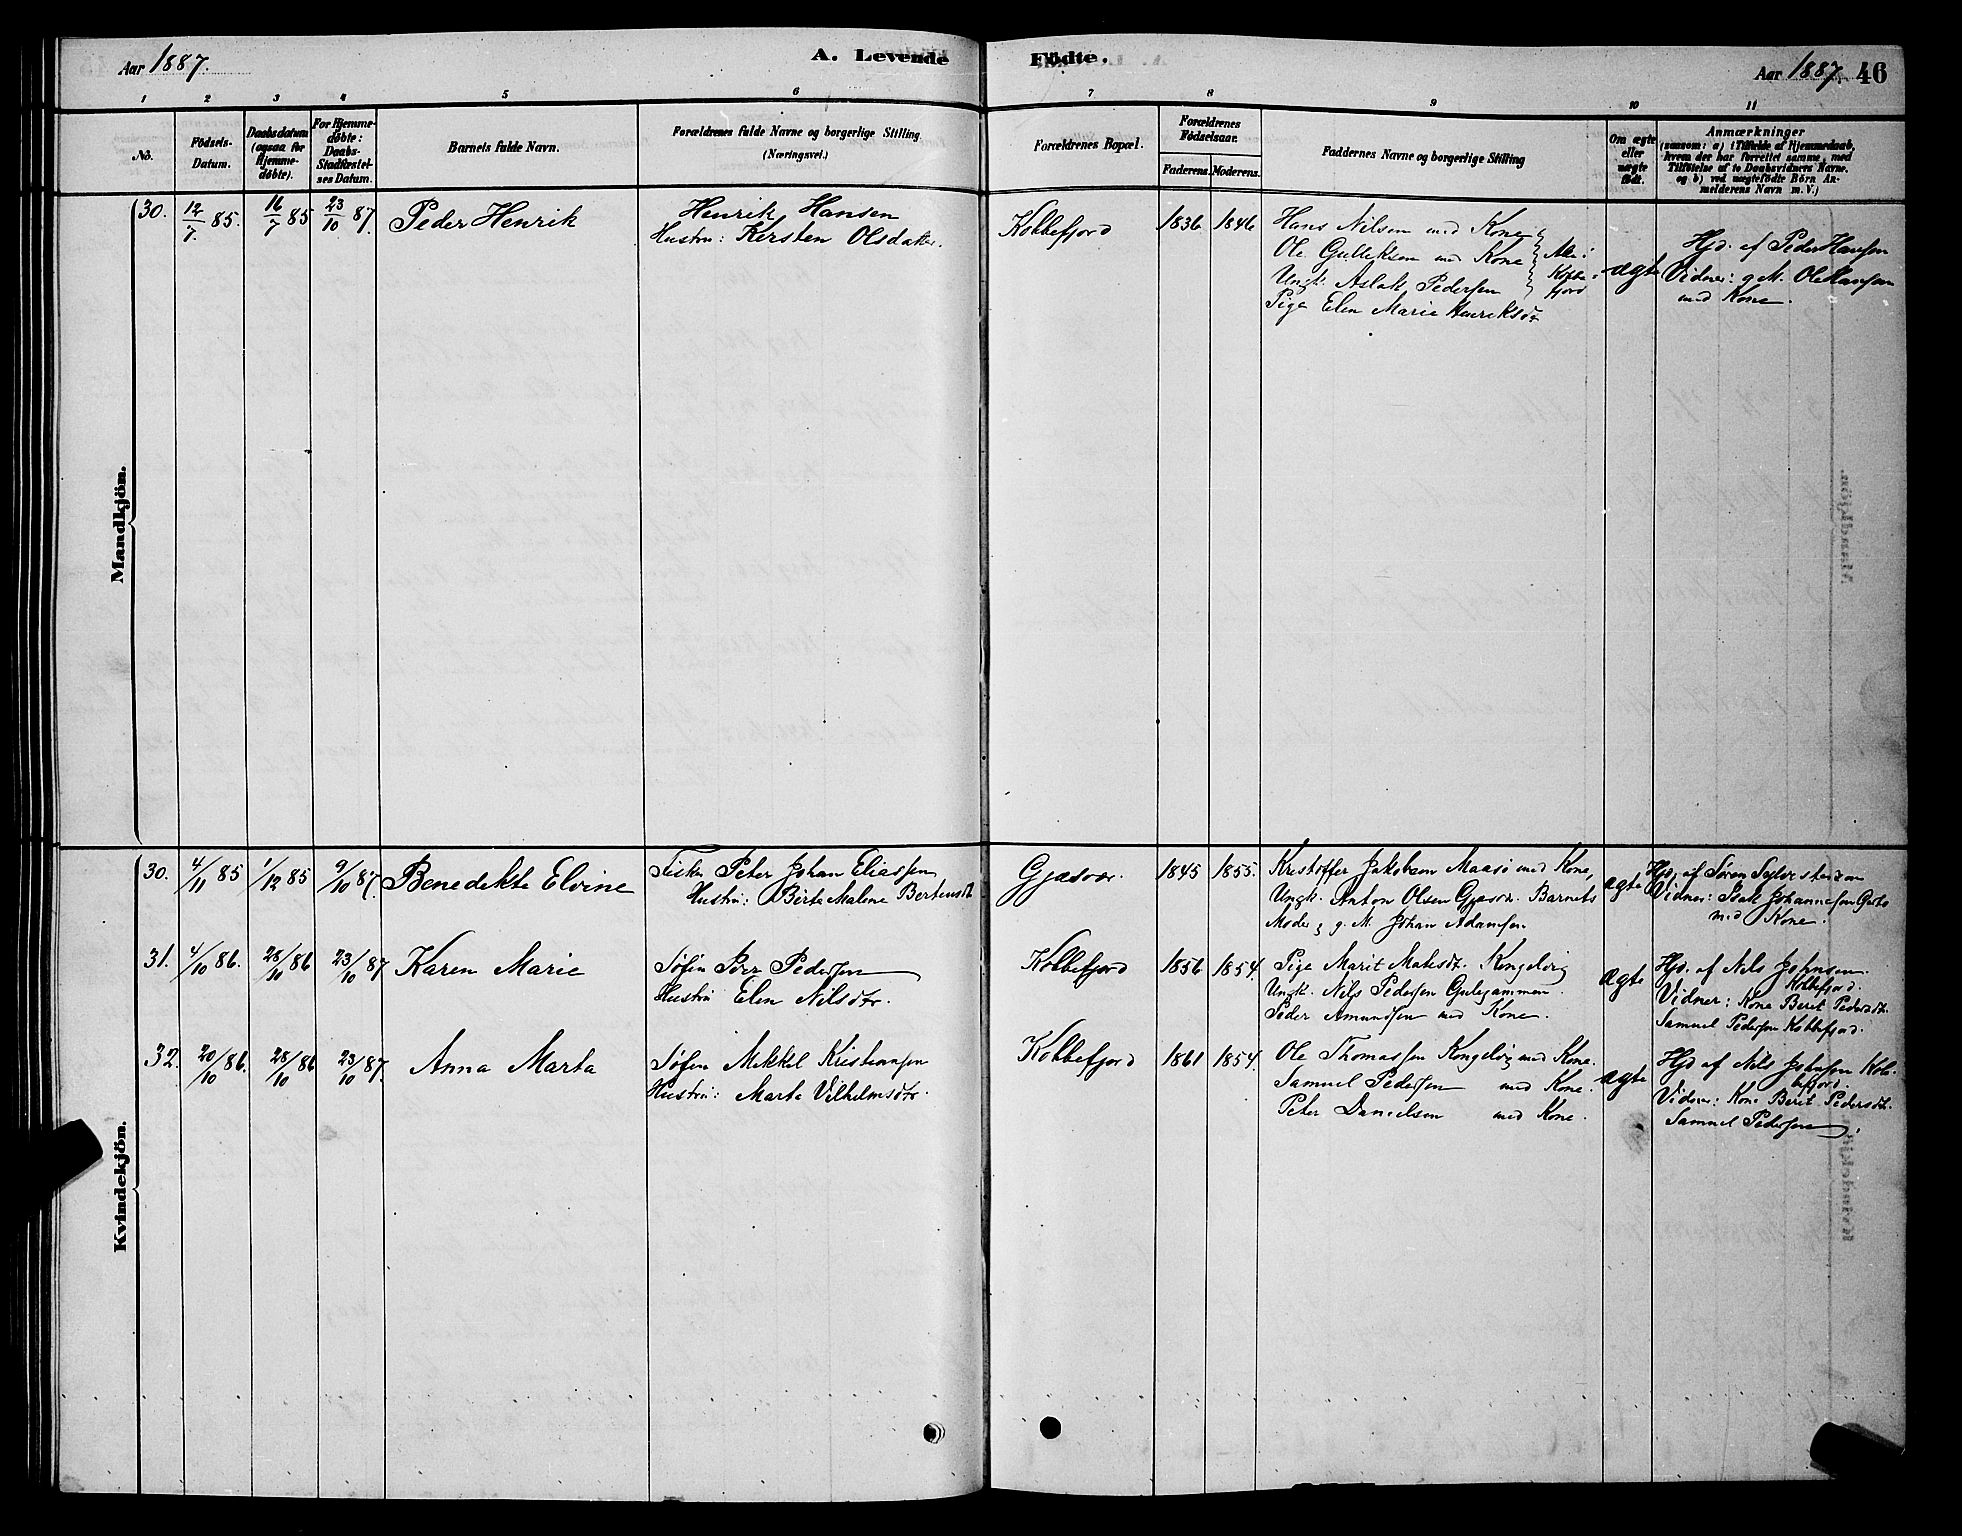 Aar 1887.
A. Levende Födte.
Aar 1887. 46
1 2 3 4 5 6 7 8 9 10 11
No.
Födsels-Datum.
Daabsdatum (ogsaa for Hjemme-döbte).
For Hjemme-döbte: Daabs-Stadfæstel-ses Datum.
Barnets fulde Navn.
Forældrenes fulde Navne og borgerlige Stilling.
(Næringsvei.)
Forældrenes Bopæl.
Forældrenes Födselsaar.
Faderens. Moderens.
Faddernes Navne og borgerlige Stilling
Om ægte eller uægte födt.
Anmærkninger
(saasom: a) i Tilfælde af Hjemmedaab,
hvem der har forrettet samme, med
Tilföielse af to Daabsvidners Navne.
og b) ved uægtefödte Börn An-
melderens Navn m. V.)
Mandkjön.
30. 12/7 85. 16/7 85 23/10 87. Peder Henrik
Henrik Hansen
Hustru: Kersten Olsdatter.
Kobbefjord 1836 1846
Hans Nilsen med Kone
Ole Gulleksen med Kone
Ungk. Aslak Pedersen
Alle i Kobbefjord
Pige Elen Marie Henriksdtr
ægte
Hjd. af Peder Hansen
Vidner: g. M. Ole Hansen
med Kone.
Kvindekjön.
30. 4/11 85 1/12 85 9/10 87. Benedikte Elvine
Fisker Peter Johan Eliassen
Hustru: Birte Malene Bertensdt
Gjæsvær. 1845 1855.
Kristoffer Jakobsen Maasö med Kone,
Ungk. Anton Olsen Gjæsvær. Barnets
Moder, g. M. Johan Adamsen
ægte
Hjd. af Sören Sylvestersen
Vidner: Isak Johannesen
med Kone.
31. 4/10 86. 28/10 86 23/10 87 Karen Marie
Söfin Peder Pedersen
Hustru Elen Nilsdtr.
Kobbefjord 1856 1854.
Pige Marit Matisdt. Kongelvig
Ungk. Nils Pedersen Gulgammen.
Peder Amundsen med Kone.
ægte
Hjd. af Nils Johnsen
Kobbefjord.
Vidner: Kone Berit Pedersdt.
Samuel Pedersen Kobbefjord.
32. 20/10 86. 28/10 86 23/10 87. Anna Marta
Söfin Mikkel Kristiansen
Hustru: Marte Vilhelmsdtr.
Kobbefjord 1861 1854.
Ole Thomassen Kongelvig med Kone.
Samuel Pedersen med Kone.
Peter Danielsen med Kone.
ægte
Hjd af Nils Johnsen Kob-
befjord.
Vidner: Kone Berit Pedersdt.
Samuel Pedersen.